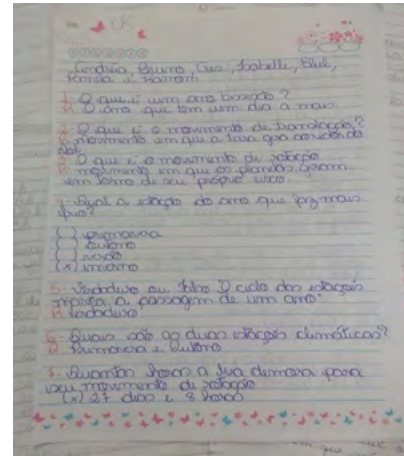 OK
Andréia, Bruna, Cus, Isabelle, Elul,
Pamila e Ramom
1- O que é um ano bissexto?
R: O ano que tem um dia a mais.
2- O que é o movimento de translação?
R: movimento em que a terra gira ao redor do
sol.
3- O que é o movimento de rotação
R: movimento em que os planetas giram
em torno de seu próprio eixo.
4- Qual a estação do ano que faz mais
frio?
( ) primavera
( ) outono
( ) verão
(x) inverno
5- Verdadeiro ou falso O ciclo das estações
marca a passagem de um ano.
R: Verdadeiro
6- Quais são as duas estações climáticas?
R: Primavera e Outono
7- Quantas horas a lua demora para
seu movimento de rotação
(x) 27 dias e 8 horas